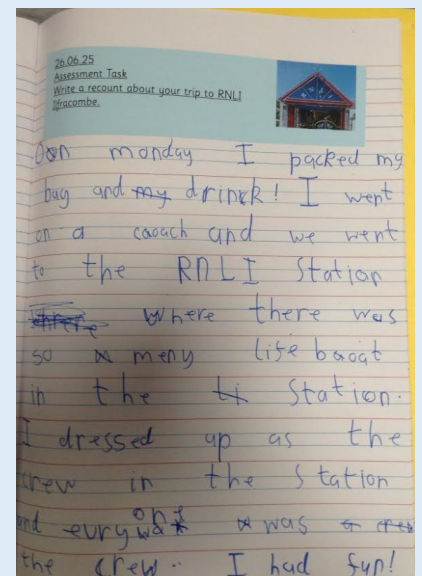 26.06.25
Assessment Task
Write a recount about your trip to RNLI
Ilfracombe.
Oon monday I packed my
bag and my drinck! I went
on a caoach and we went
to the RNLI Station
where there was
so meny life baoat
in the Station.
I dressed up as the
crew in the Station
and evryone was
the crew. I had fun!